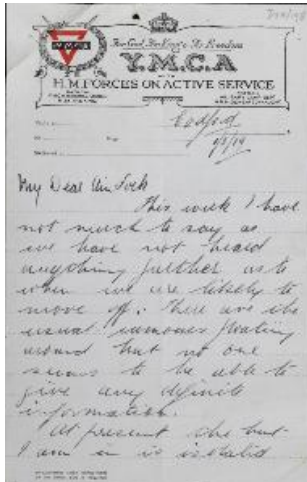 For God, For King & For Freedom
Y.M.C.A
H.M. FORCES ON ACTIVE SERVICE
Codford
My Dear Mr. Lock
This week I have
not much to say as
we have not heard
anything further as to
when we are likely to
move off. There are the
usual rumours floating
around but no one
seems to be able to
give any definite
information.
At present the hut
I am in is isolated